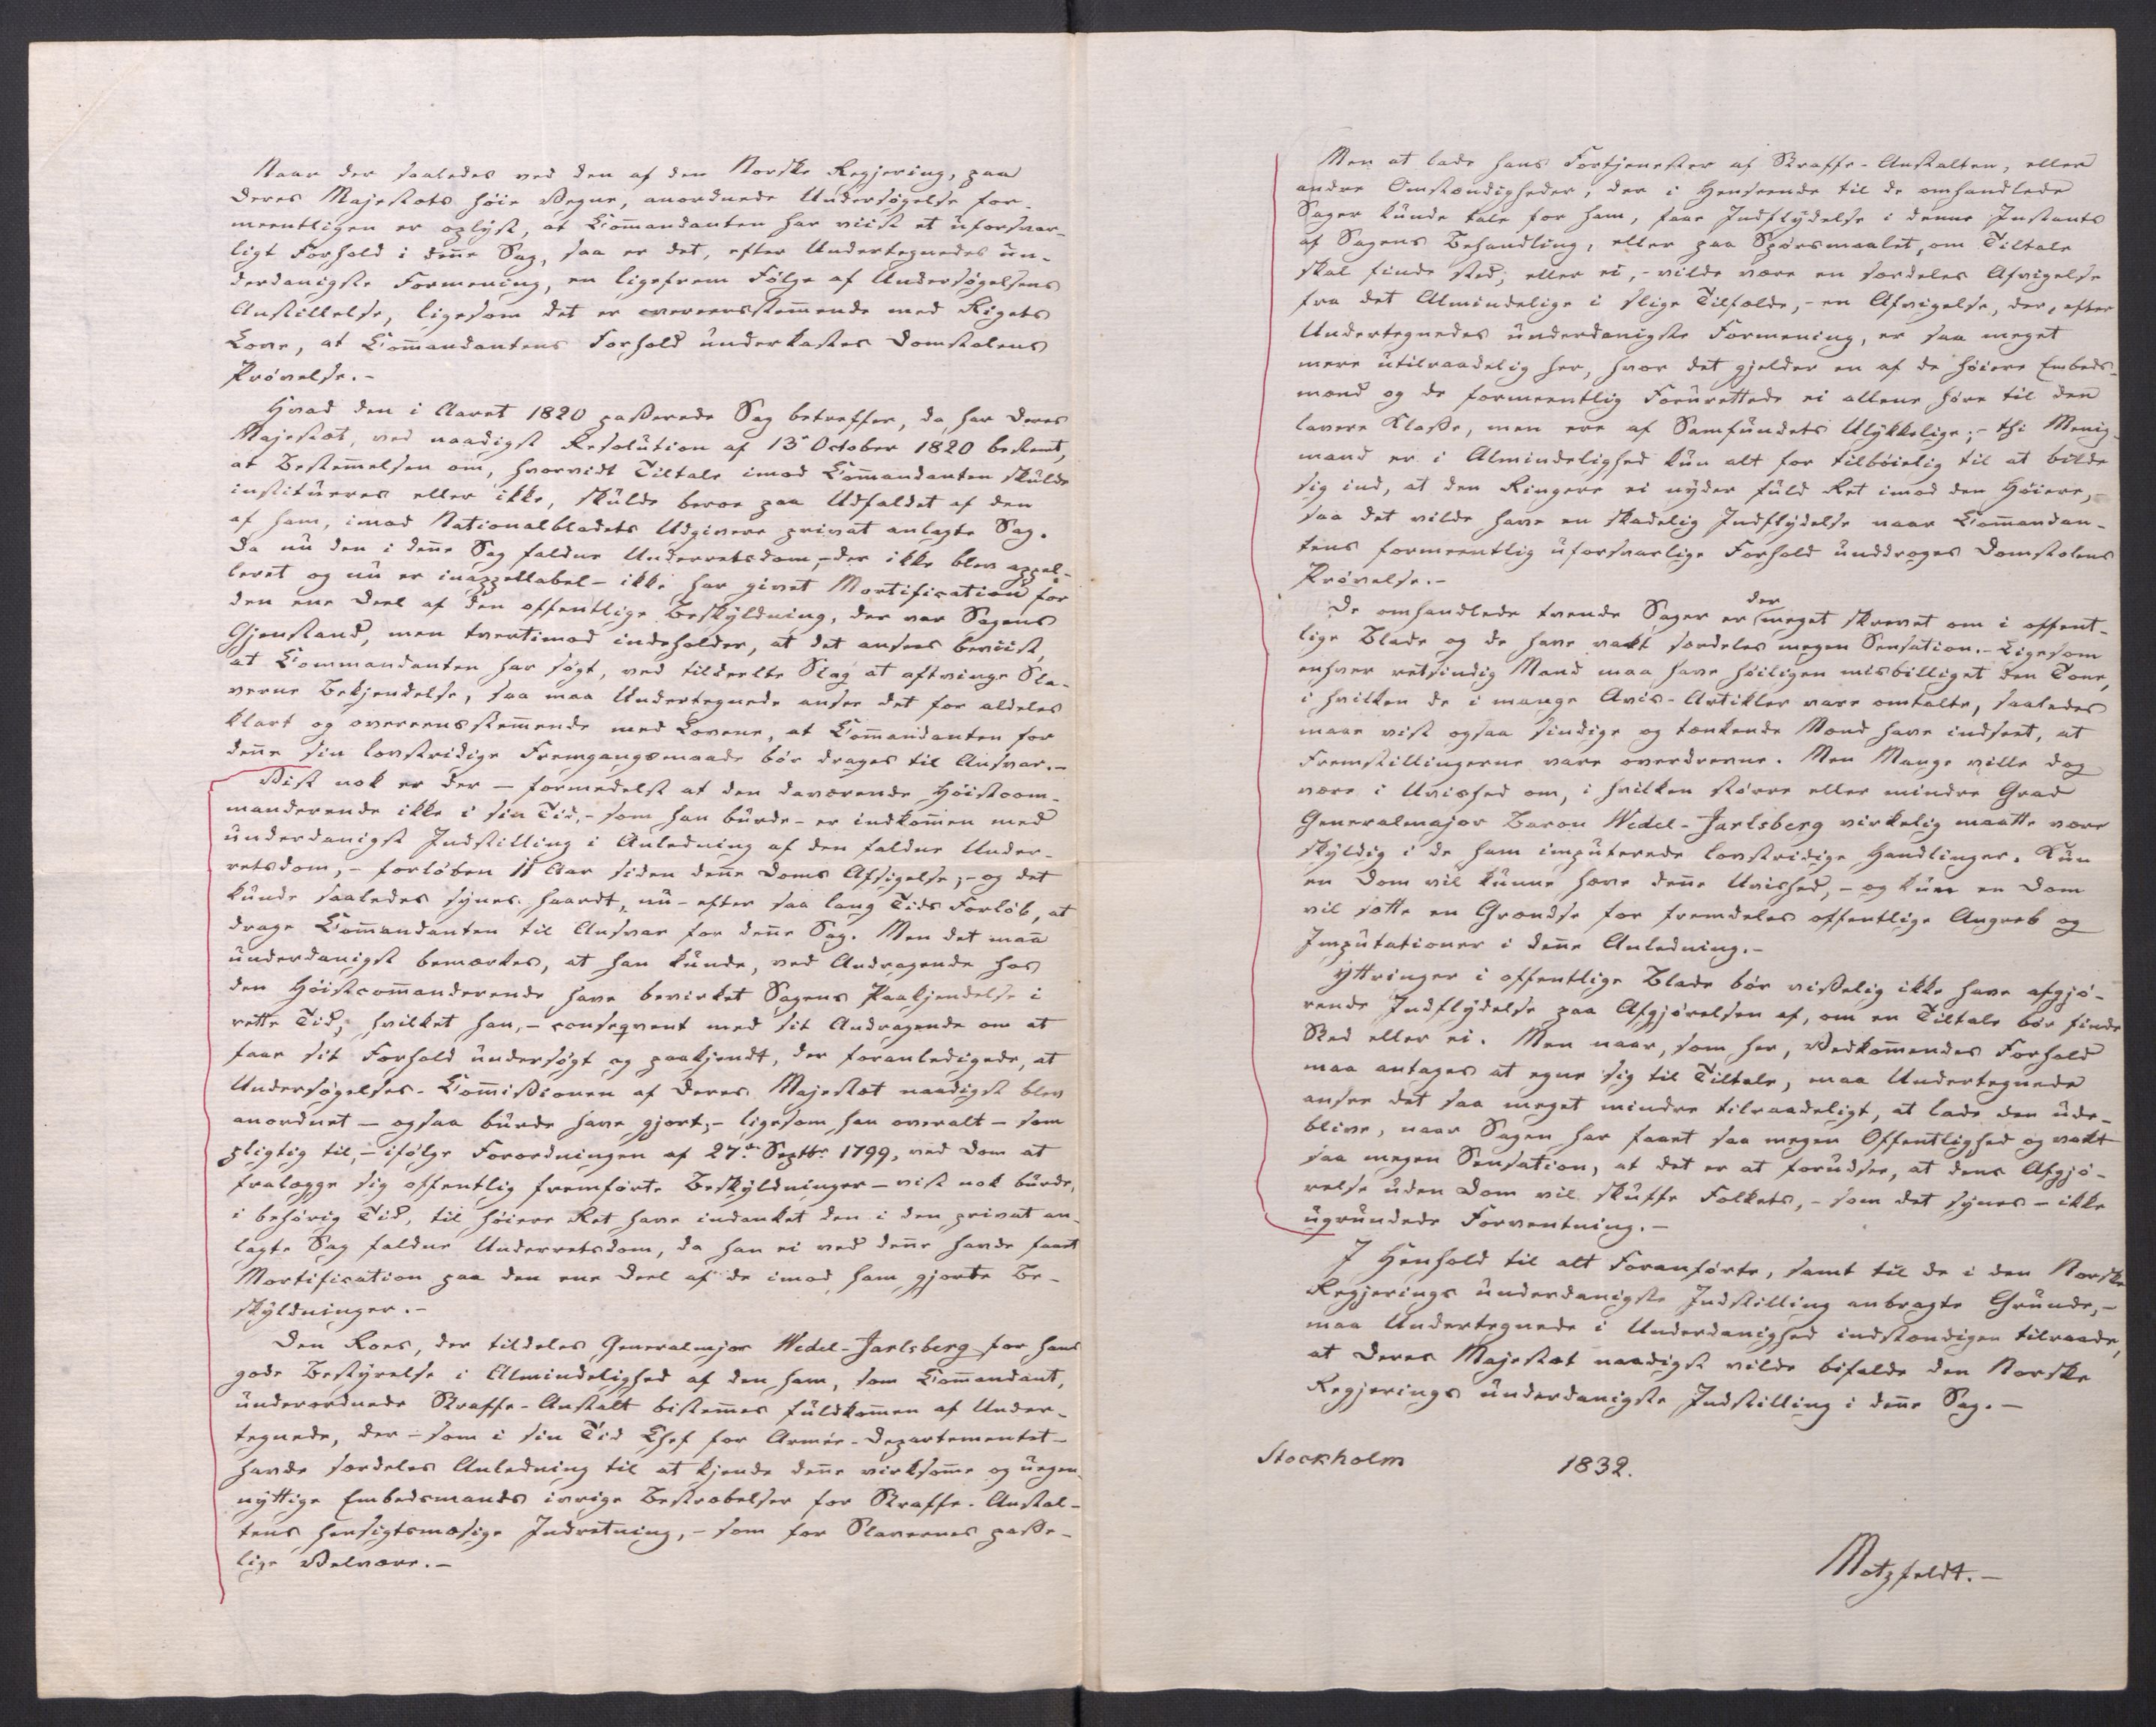 Naar der saaledes ved den af den Norske Regjering, paa
Deres Majestæts høie Vegne, anordnede Undersøgelse for-
meentligen er oplyst, at Com̅andanten har viist et uforsvar-
ligt Forhold i den̅e Sag, saa er det, efter Undertegnedes un-
derdanigste Formening, en ligefrem Følge af Undersøgelsens
Anstillelse, ligesom det er overeensstem̅ende med Rigets
Love, at Com̅andantens Forhold underkastes Domstolens
Prøvelse.-
Hvad den i Aaret 1820 passerede Sag betreffer, da har Deres
Majestæt, ved naadigst Resolution af 13de October 1820 bestemt,
at Bestem̅elsen om, hvorvidt Tiltale imod Com̅andanten skulde
institueres eller ikke, skulde beroe paa Udfaldet af den
af ham, imod Nationalbladets Udgivere privat anlagte Sag.
Da nu den i den̅e Sag faldne Underretsdom,- der ikke blev appel-
leret og nu er inappellabel - ikke har givet Mortification for
den ene Deel af den offentlige Beskyldning, der var Sagens
Gjenstand, men tvertimod indeholder, at det ansees beviist,
at Commandanten har søgt, ved tildeelte Slag at aftvinge Sla-
verne Bekjendelse, saa maa Undertegnede ansee det for aldeles
klart og overeensstem̅ende med Lovene, at Com̅andanten for
den̅e sin lovstridige Fremgangsmaade bør drages til Ansvar.-
Vist nok er der - formedelst at den daværende Høistcom-
manderende ikke i sin Tid,- som han burde - er indkom̅en med
underdanigst Indstilling i Anledning af den faldne Under-
retsdom,- forløben 11 Aar siden den̅e Doms Afsigelse;- og det
kunde saaledes synes haardt, nu - efter saa lang Tids Forløb, at
drage Com̅andanten til Ansvar for den̅e Sag. Men det maa
underdanigst bemærkes, at han kunde, ved Andragende hos
den Høistcom̅anderende have bevirket Sagens Paakjendelse i
rette Tid, hvilket han,- conseqvent med sit Andragende om at
faae sit Forhold undersøgt og paakjendt, der foranledigede, at
Undersøgelses-Com̅issionen af Deres Majestæt naadigst blev
anordnet - ogsaa burde have gjort;- ligesom han overalt - som
pligtig til,- ifølge Forordningen af 27de Septbr 1799, ved Dom at
fralægge sig offentlig fremførte Beskyldninger - vist nok burde,
i behørig Tid, til høiere Ret have indanket den i den privat an-
lagte Sag faldne Underretsdom, da han ei ved den̅e havde faaet
Mortification paa den ene Deel af de imod ham gjorte Be-
skyldninger.-
Den Roes, der tildeles Generalmajor Wedel-Jarlsberg for hans
gode Bestyrelse i Almindelighed af den ham, som Com̅andant,
underordnede Straffe-Anstalt bistem̅es fuldkom̅en af Under-
tegnede, der - som i sin Tid Chef for Armée-Departementet -
havde særdeles Anledning til at kjende den̅e virksom̅e og uegen-
nyttige Embedsmands ivrige Bestræbelser for Straffe-Anstal-
tens hensigtsmæsige Indretning,- som for Slavernes passe-
lige Velvære.-
Men at lade hans Fortjenester af Straffe-Anstalten, eller
andre Omstændigheder, der i Henseende til de omhandlede
Sager kunde tale for ham, faae Indflydelse i denne Instants
af Sagens Behandling, eller paa Spørsmaalet, om Tiltale
skal finde sted, eller ei,- vilde være en særdeles Afvigelse
fra det Almindelige i slige Tilfælde,- en Afvigelse, der, efter
Undertegnedes underdanigste Formening, er saa meget
mere utilraadelig her, hvor det gjelder en af de høiere Embeds-
mænd og de formeentlig Forurettede ei allene høre til den
lavere Klasse, men ere af Samfundets Ulykkelige;- thi Menig-
mand er i Almindelighed kun alt for tilbøielig til at bilde
sig ind, at den Ringere ei nyder fuld Ret imod den Høiere,-
saa det vilde have en skadelig Indflydelse naar Com̅andan-
tens formeentlig uforsvarlige Forhold unddroges Domstolens
Prøvelse.-
De omhandlede tvende Sager er der meget skrevet om i offent-
lige Blade og de have vakt særdeles megen Sensation.- Ligesom
enhver retsindig Mand maa have høiligen misbilliget den Tone,
i hvilken de i mange Avis-Artikler vare omtalte, saaledes
maae vist ogsaa sindige og tænkende Mænd have indseet, at
Fremstillingerne vare overdrevne. Men Mange ville dog
være i Uvished om, i hvilken større eller mindre Grad
Generalmajor Baron Wedel-Jarlsberg virkelig maatte være
skyldig i de ham imputerede lovstridige Handlinger. Kun
en Dom vil kunne hæve den̅e Uvished,- og kun en Dom
vil sætte en Grændse for fremdeles offentlige Angreb og
Imputationer i den̅e Anledning.-
Yttringer i offentlige Blade bør visselig ikke have afgjø-
rende Indflydelse paa Afgjørelsen af, om en Tiltale bør finde
Sted eller ei. Men naar, som her, Vedkom̅endes Forhold
maa antages at egne sig til Tiltale, maa Undertegnede
ansee det saa meget mindre tilraadeligt, at lade den ude-
blive, naar Sagen har faaet saa megen Offentlighed og vakt
saa megen Sensation, at det er at forudsee, at dens Afgjø-
relse uden Dom vil skuffe Folkets,- som det synes - ikke
ugrundede Forventning.-
I Henhold til alt Foranførte, samt til de i den Norske
Regjerings underdanigste Indstilling anbragte Grunde,-
maa Undertegnede i Underdanighed indstændigen tilraade,
at Deres Majestæt naadigst vilde bifalde den Norske
Regjerings underdanigste Indstilling i den̅e Sag.-
Stockholm 1832.
Motzfeldt.-